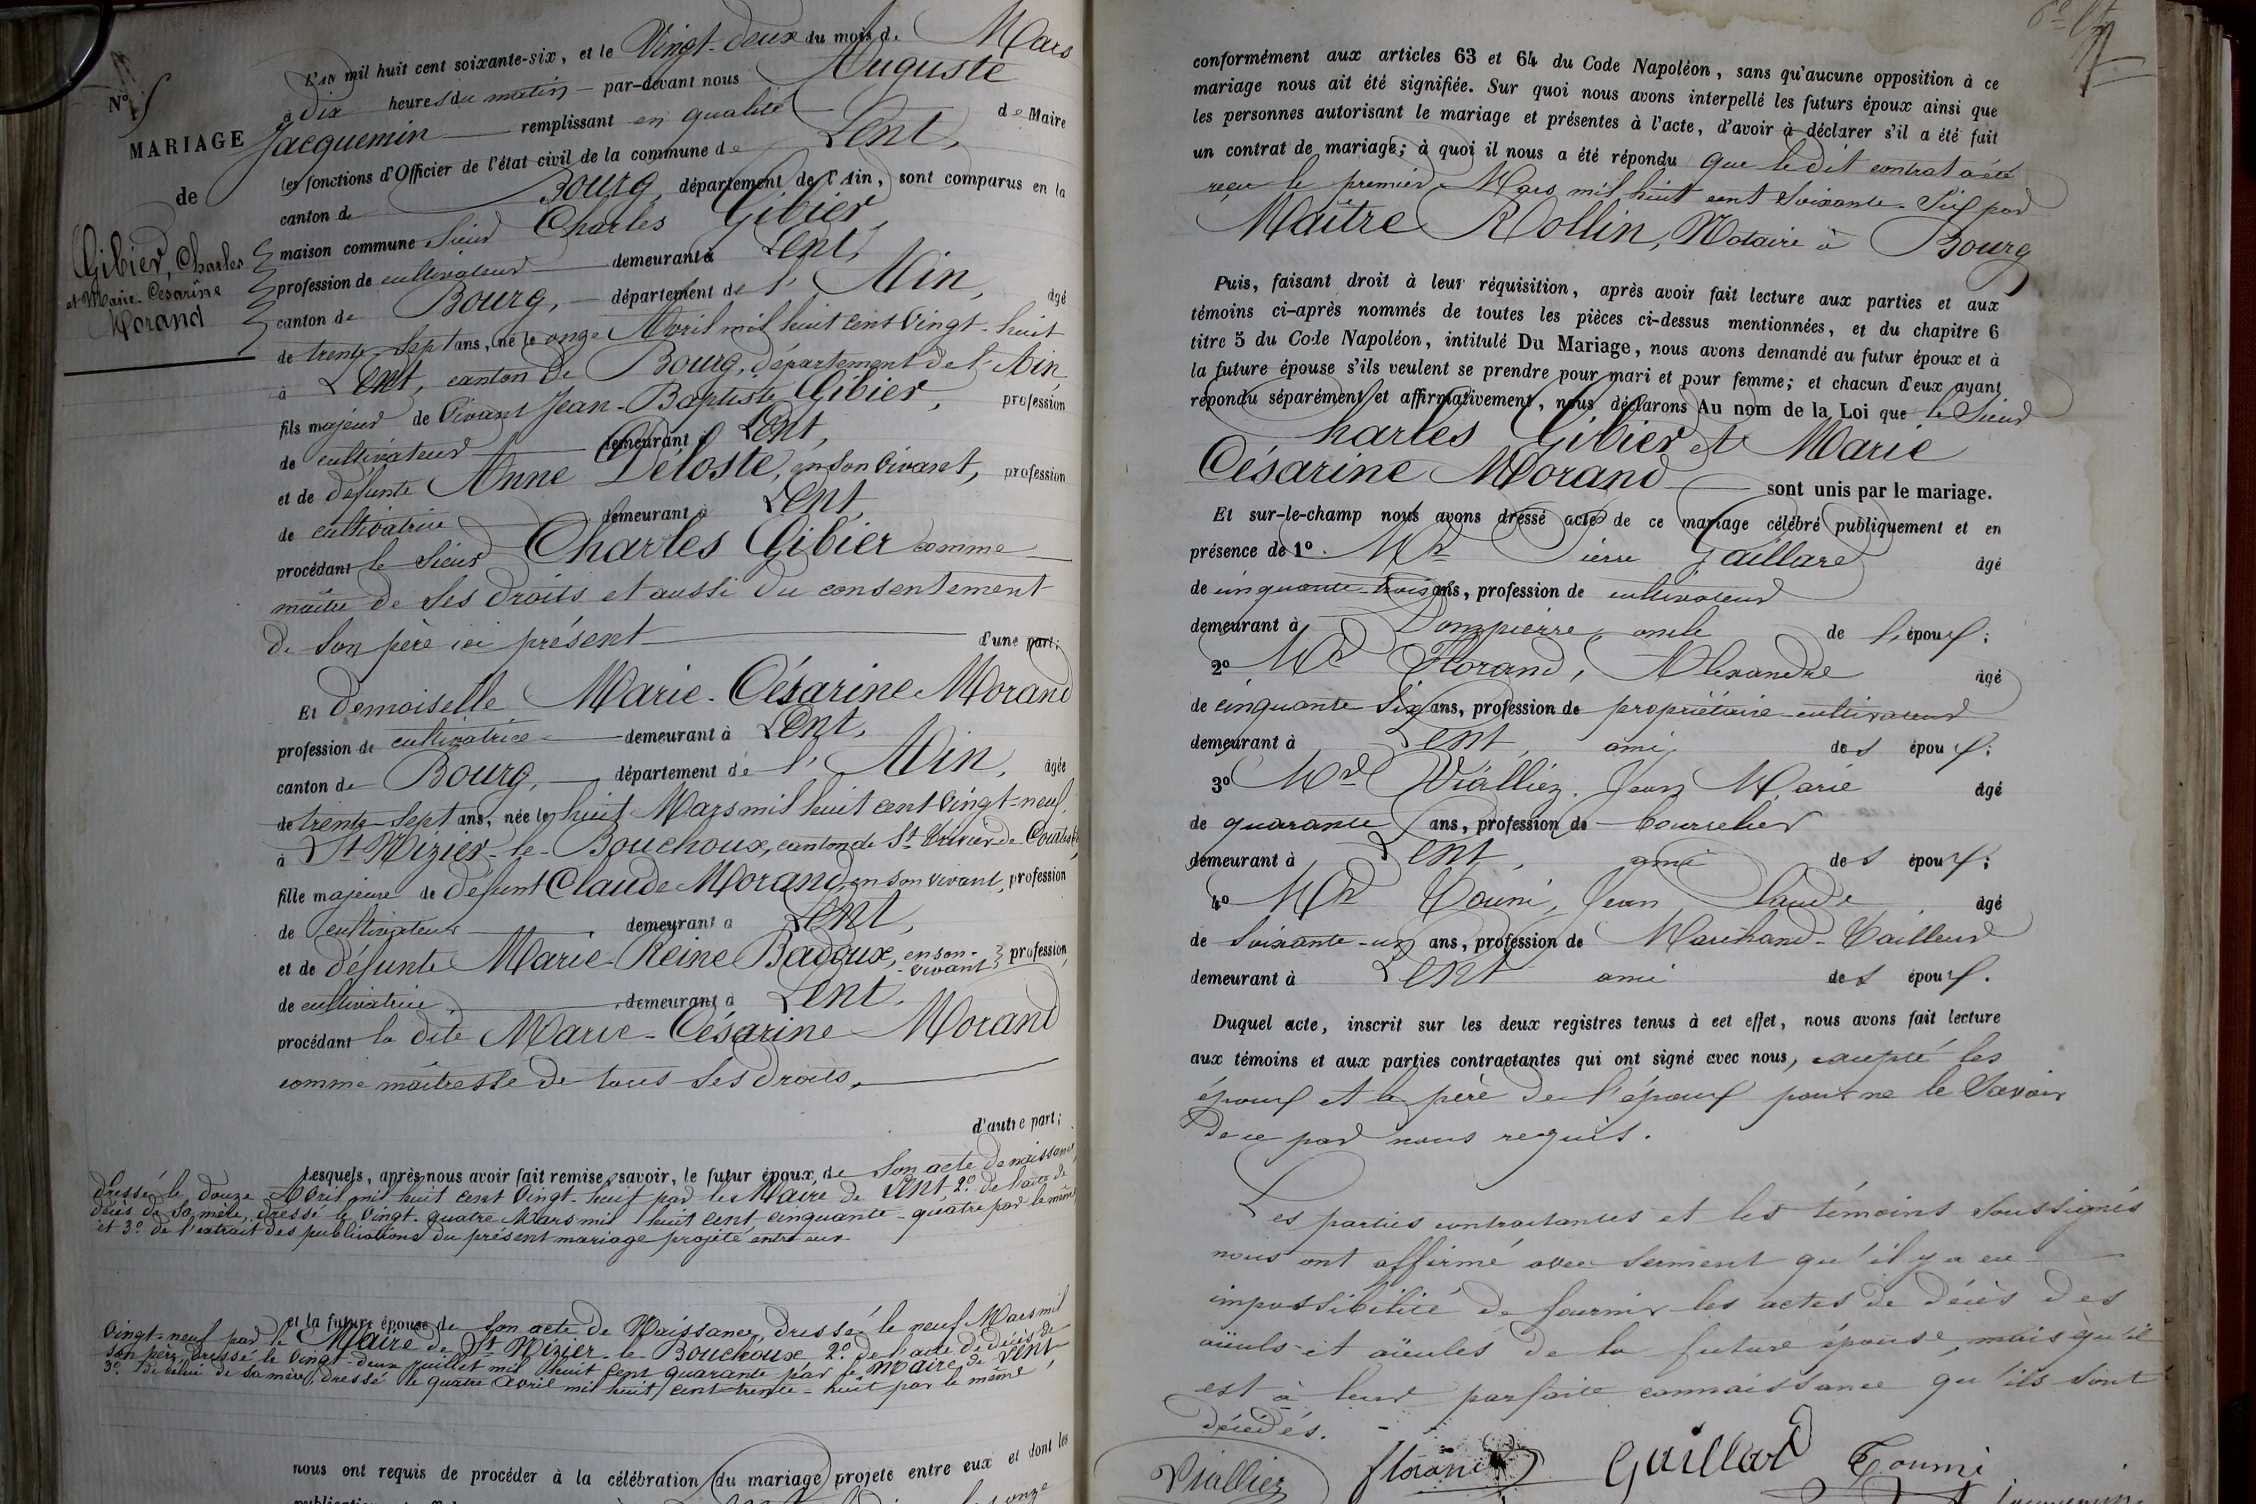 L'an mil huit cent soixante-six, et le Vingt-deux du mois de Mars
à dix heures du matin par-devant nous Auguste
Jacquemin remplissant en qualité de Maire
les fonctions d'Officier de l'état civil de la commune de Lent,
canton de Bourg, département de l'Ain, sont comparus en la
maison commune Sieur Charles Gibier,
profession de cultivateur demeurant à Lent,
canton de Bourg, département de l'Ain, âgé
de trente-sept ans, né le onze Avril mil huit cent vingt-huit
à Lent, canton de Bourg, département de l'Ain,
fils majeur de vivant Jean-Baptiste Gibier, profession
de cultivateur demeurant à Lent,
et de défunte Anne Déloste, en son vivant, profession
de cultivatrice demeurant à Lent,
procédant le Sieur Charles Gibier comme
maître de ses droits et aussi du consentement
de son père ici présent d'une part;
Et demoiselle Marie-Césarine Morand
profession de cultivatrice demeurant à Lent,
canton de Bourg, département de l'Ain, âgée
de trente-sept ans, née le huit Mars mil huit cent vingt-neuf,
à St Nizier-le-Bouchoux, canton de St Trivier-de-Courtes
fille majeure de défunt Claude Morand, en son vivant, profession
de cultivateur demeurant à Lent,
et de défunte Marie-Reine Badoux, en son-vivant, profession
de cultivatrice demeurant à Lent.
procédant la dite Marie-Césarine Morand
comme maîtresse de tous ses droits,
d'autre part;
Lesquels, après nous avoir fait remise, savoir, le futur époux, de son acte de naissance,
dressé le douze Avril mil huit cent vingt-huit par le Maire de Lent, 2º de l'acte de
décès de sa mère, dressé le vingt-quatre Mars mil huit cent cinquante-quatre par le même
et 3º de l'extrait des publications du présent mariage projeté entre eux
et la future épouse de son acte de Naissance, dressé le neuf Mars mil
vingt-neuf par le Maire de St Nizier-le-Bouchoux 2º de l'acte de décès de
son père, dressé le vingt-deux juillet mil huit cent quarante par le Maire de Lent
3º de celui de sa mère, dressé le quatre avril mil huit cent trente-huit par le même,
nous ont requis de procéder à la célébration du mariage projeté entre eux et dont les
Nº 5
MARIAGE
de
Gibier, Charles
et Marie-Césarine
Morand
conformément aux articles 63 et 64 du Code Napoléon, sans qu'aucune opposition à ce
mariage nous ait été signifiée. Sur quoi nous avons interpellé les futurs époux ainsi que
les personnes autorisant le mariage et présentes à l'acte, d'avoir à déclarer s'il a été fait
un contrat de mariage; à quoi il nous a été répondu que le dit contrat a été
reçu le premier Mars mil huit cent soixante-six par
Maître Rollin, Notaire à Bourg
Puis, faisant droit à leur réquisition, après avoir fait lecture aux parties et aux
témoins ci-après nommés de toutes les pièces ci-dessus mentionnées, et du chapitre 6
titre 5 du Code Napoléon, intitulé Du Mariage, nous avons demandé au futur époux et à
la future épouse s'ils veulent se prendre pour mari et pour femme; et chacun d'eux ayant
répondu séparément et affirmativement, nous déclarons Au nom de la Loi que le Sieur
Charles Gibier et Marie
Césarine Morand sont unis par le mariage.
Et sur-le-champ nous avons dressé acte de ce mariage célébré publiquement et en
présence de 1º. Mr Pierre Gaillard âgé
de cinquante-trois ans, profession de cultivateur
demeurant à Dompierre, oncle de l'époux;
2º Mr Florand, Alexandre âgé
de cinquante-six ans, profession de propriétaire-cultivateur
demeurant à Lent, ami des époux;
3º Mr Vialliez, Jean Marie âgé
de quarante ans, profession de bourrelier
demeurant à Lent, ami des époux;
4º Mr Tourni, Jean Claude, âgé
de soixante-un ans, profession de Marchand-Tailleur
demeurant à Lent ami des époux.
Duquel acte, inscrit sur les deux registres tenus à cet effet, nous avons fait lecture
aux témoins et aux parties contractantes qui ont signé avec nous, excepté les
époux et le père de l'époux pour ne le savoir
de ce par nous requis.
Les parties contractantes et les témoins soussignés
nous ont affirmé avec serment qu'il y a eu
impossibilité de fournir les actes de décès des
aïeuls et aïeules de la future épouse, mais qu'il
est à leur parfaite connaissance qu'ils sont
décédés.
Vialliez Florand Gaillard Tourni
Jacquemin